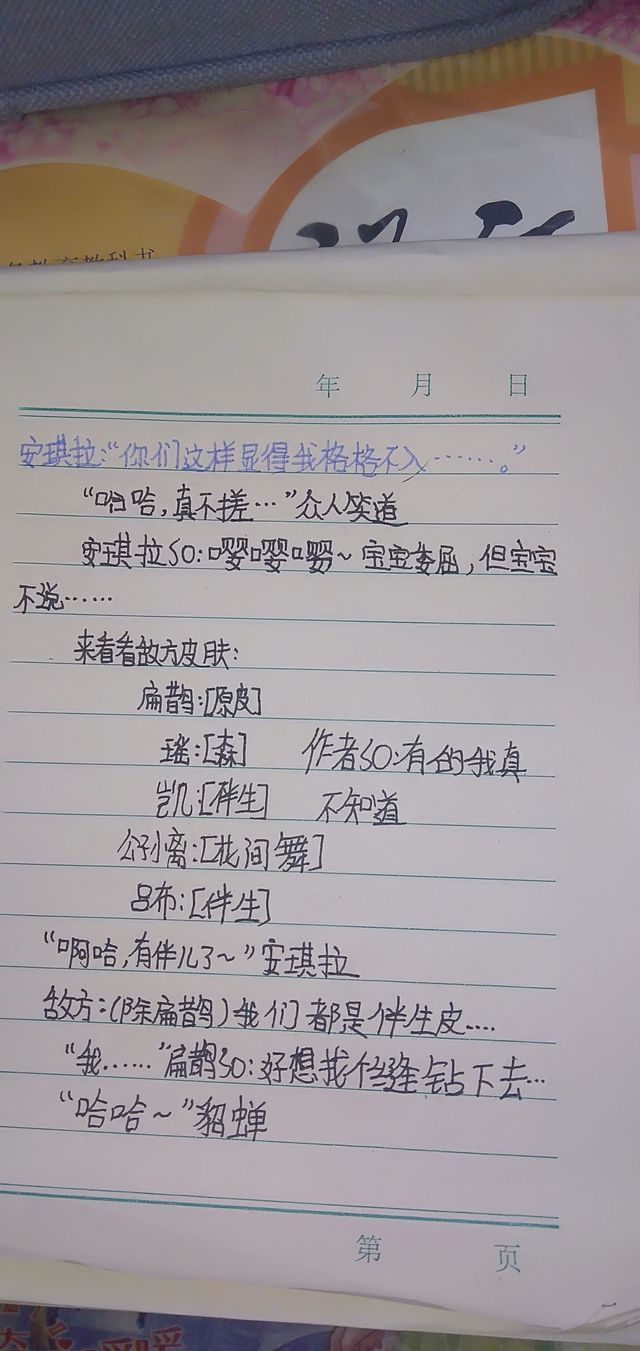 教育教科书
年 月 日
安琪拉:“你们这样显得我格格不入……。”
“哈,真不搓…”众人笑道
安琪拉SO:嘤嘤嘤~宝宝委屈,但宝宝
不说……
来看看敌方皮肤:
扁鹊:[原皮]
瑶:[森] 作者SO:有的我真
凯:[伴生] 不知道
公孙离:[花间舞]
吕布:[伴生]
“啊哈,有伴儿了~”安琪拉
敌方:(除扁鹊)我们都是伴生皮....
“我……”扁鹊SO:好想找个缝钻下去…
“哈哈~”貂蝉
第 页